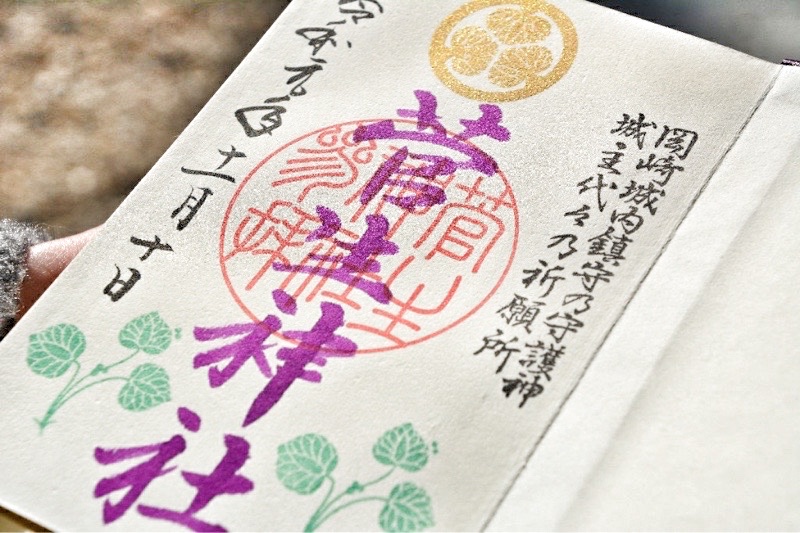 岡崎城内鎮守乃守護神
城主代々乃祈願所
菅生神社
菅生
神社
参拝
令和元年十一月十日